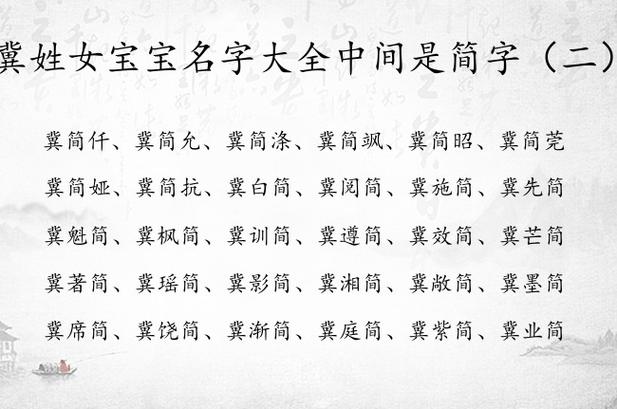 冀姓女宝宝名字大全中间是简字（二）
冀简仟、冀简允、冀简涤、冀简飒、冀简昭、冀简莞
冀简娅、冀简抗、冀白简、冀阅简、冀施简、冀先简
冀魁简、冀枫简、冀训简、冀遵简、冀效简、冀芒简
冀著简、冀瑶简、冀影简、冀湘简、冀敞简、冀墨简
冀席简、冀饶简、冀渐简、冀庭简、冀紫简、冀业简